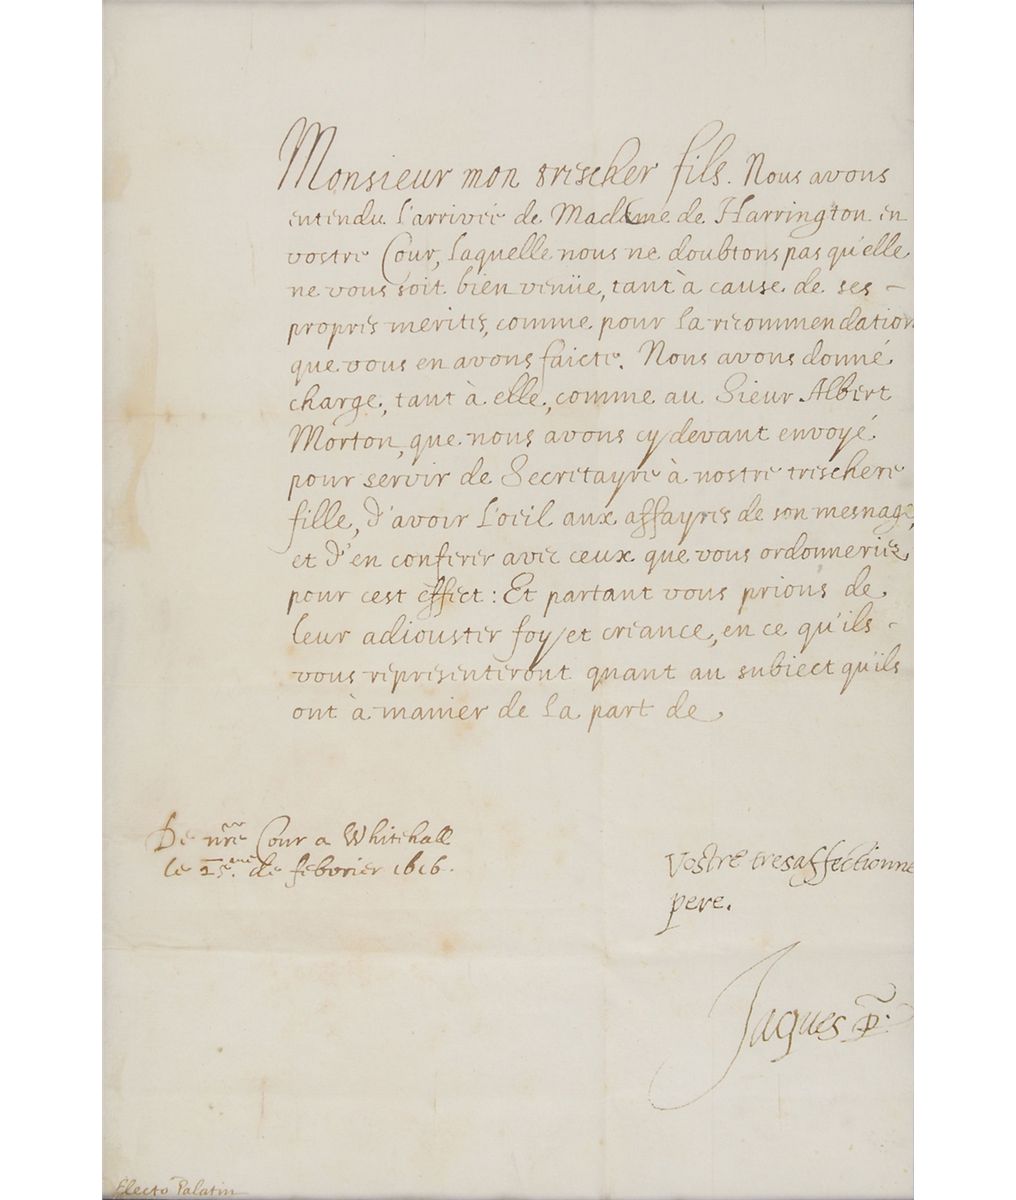 Monsieur mon trescher fils. Nous avons
entendu l'arrivée de Madame de Harrington en
vostre Cour, laquelle nous ne doubtons pas qu'elle
ne vous soit bien venüe, tant à cause de ses -
propres merites, comme pour la recommendation
que vous en avons faicte. Nous avons donné
charge, tant à elle, comme au Sieur Albert
Morton, que nous avons cy devant envoyé
pour servir de Secretayre à nostre treschere
fille, d'avoir l'oeil aux affayres de son mesnage,
et d'en conferer avec ceux que vous ordonneriez
pour cest effect: Et partant vous prions de
leur adiouster foy et creance, en ce qu'ils -
vous representeront quant au subiect qu'ils
ont à manier de la part de
De nre Cour a Whitehall
le 25.eme de febvrier 1616.
Vostre tresaffectionne
pere.
Jaques R.
Electo Palatin